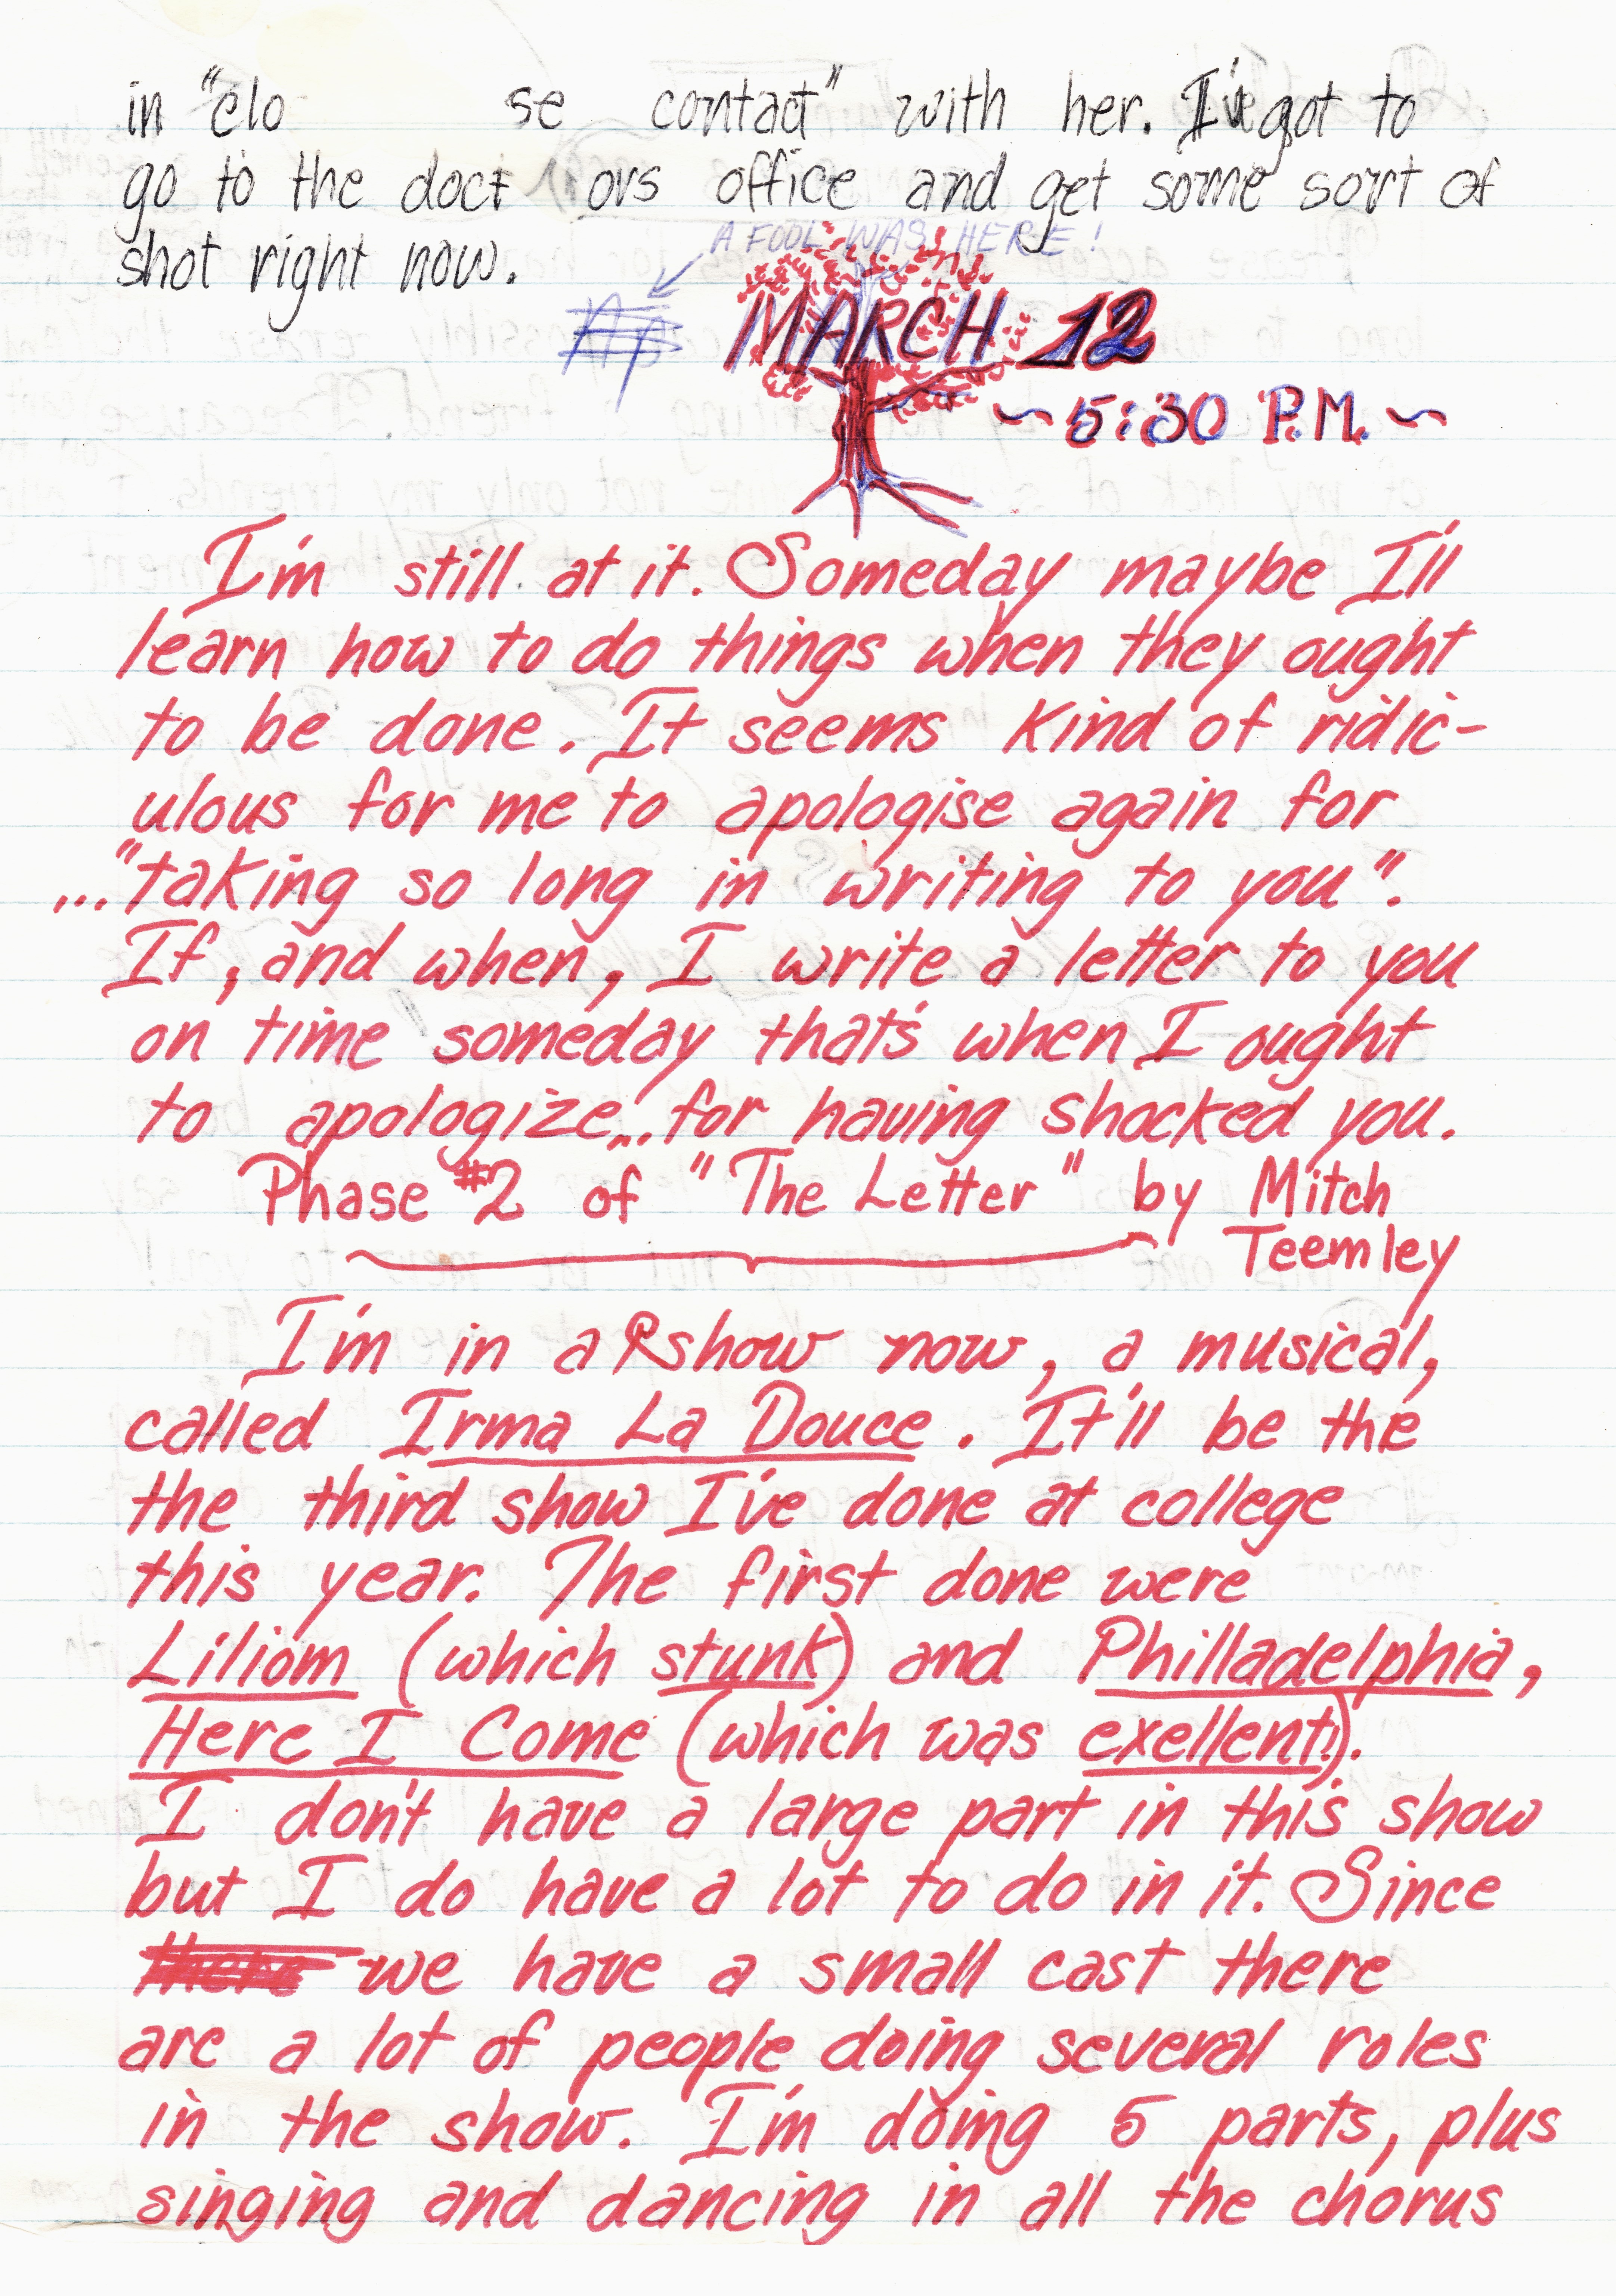 in "clo se contact" with her. I've got to
go to the doct ors office and get some sort of
shot right now.
A FOOL WAS HERE!
MARCH 12
~ 5:30 P.M. ~
I'm still at it. Someday maybe I'll
learn how to do things when they ought
to be done. It seems kind of ridic-
ulous for me to apologise again for
..."taking so long in writing to you".
If, and when, I write a letter to you
on time someday that's when I ought
to apologize... for having shocked you.
Phase #2 of "The Letter" by Mitch
Teemley
I'm in a show now, a musical,
called Irma La Douce. It'll be the
the third show I've done at college
this year. The first done were
Liliom (which stunk) and Philladelphia,
Here I Come (which was exellent!).
I don't have a large part in this show
but I do have a lot to do in it. Since
there we have a small cast there
are a lot of people doing several roles
in the show. I'm doing 5 parts, plus
singing and dancing in all the chorus